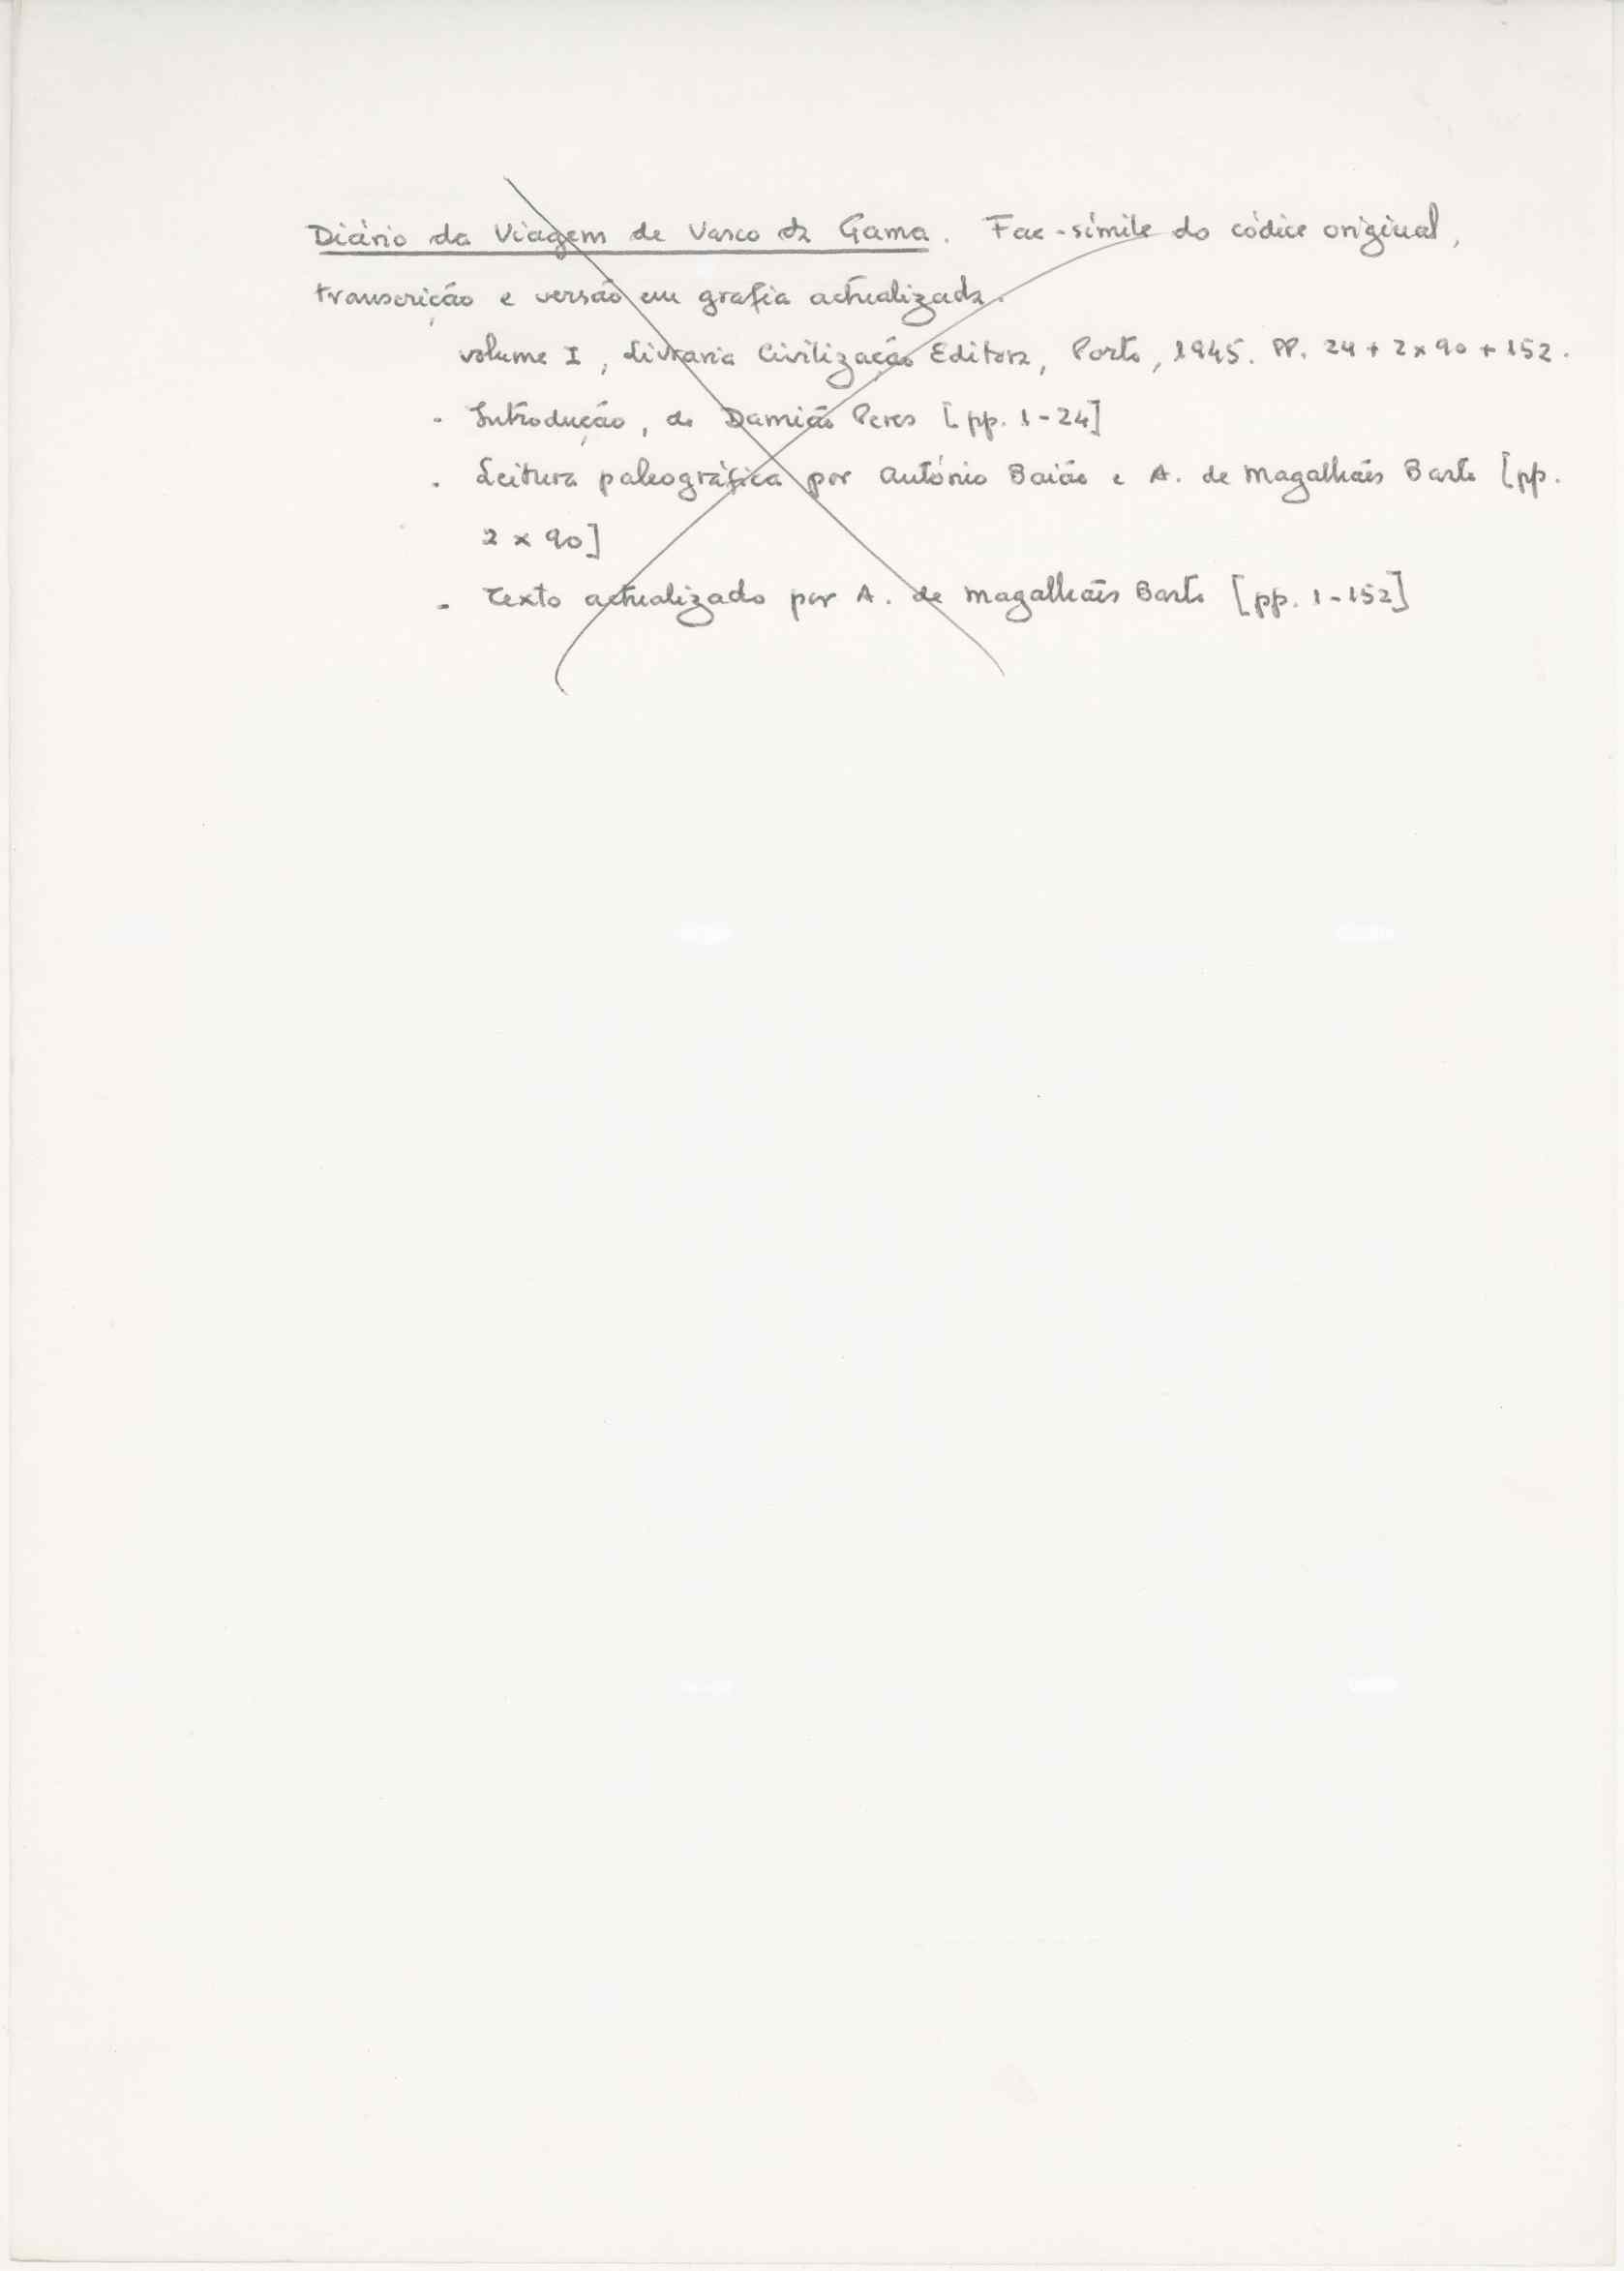 Diário da Viagem de Vasco da Gama. Fac-símile do códice original,
transcrição e versão em grafia actualizada.
volume I, Livraria Civilização Editora, Porto, 1945. PP. 24 + 2 x 90 + 152.
- Introdução, de Damião Peres [pp. 1-24]
- Leitura paleográfica por António Baião e A. de Magalhães Basto [pp.
2 x 90]
- Texto actualizado por A. de Magalhães Basto [pp. 1-152]